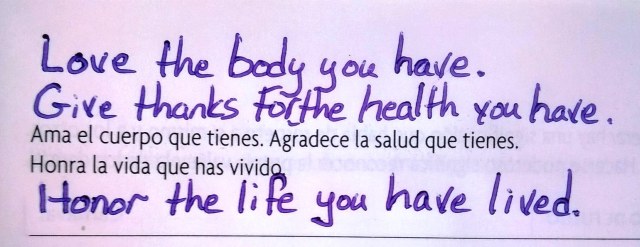 Love the body you have.
Give thanks for the health you have.
Ama el cuerpo que tienes. Agradece la salud que tienes.
Honra la vida que has vivido.
Honor the life you have lived.